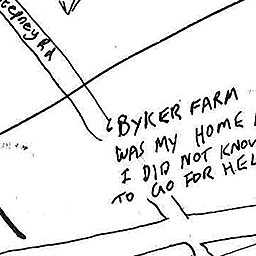 BYKER FARM
WAS MY HOME
I DID NOT KNOW
TO GO FOR HEL